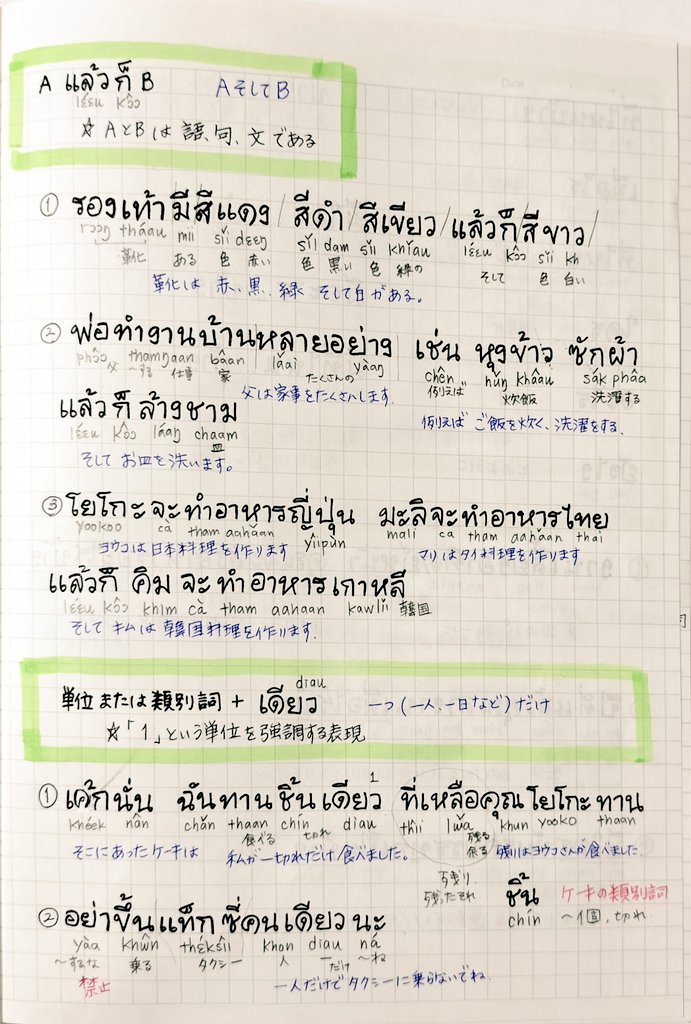 A แล้วก็ B  AそしてB
lɛ́ɛu kɔ̂ɔ
☆ AとBは 語、句、文である
① รองเท้ามีสีแดง / สีดำ / สีเขียว / แล้วก็ / สีขาว /
rɔɔŋ tháau mii sǐi dɛɛŋ sǐi dam sǐi khǐau lɛ́ɛu kɔ̂ɔ sǐi kh
革化 ある 色 赤い 色 黒い 色 緑の そして 色 白い
革化は 赤、黒、緑 そして白がある。
② พ่อทำงานบ้านหลายอย่าง เช่น หุงข้าว ซักผ้า
phɔ̂ɔ thamŋaan bâan lǎai yàaŋ chên hǔŋ khâau sák phâa
父 〜する 仕事 家 たくさんの 例えば 炊飯 洗濯する
父は家事をたくさんします。
แล้วก็ล้างชาม
例えば ご飯を炊く、洗濯をする、
lɛ́ɛu kɔ̂ɔ láaŋ chaam
皿
そして お皿を洗います。
③ โยโกะจะทำอาหารญี่ปุ่น มะลิจะทำอาหารไทย
yookoo cà tham aahǎan yîipùn mali ca tham aahǎan thai
ヨウコは日本料理を作ります マリはタイ料理を作ります
แล้วก็ คิม จะ ทำอาหารเกาหลี
lɛ́ɛu kɔ̂ɔ khim cà tham aahaan kawlǐi 韓国
そして キムは 韓国料理を作ります。
diau
単位または類別詞 + เดียว 一つ(一人、一日など)だけ
☆「1」という単位を強調する表現
1
① เค้กนั่น ฉันทานชิ้นเดียว ที่เหลือคุณโยโกะทาน
khéek nân chǎn thaan chín diau thîi lʉ̌a khun yooko thaan
食べる 切れ 残る 余る
そこにあったケーキは 私が一切れだけ食べました。 残りはヨウコさんが食べました
残り
残ったそれ
ชิ้น ケーキの類別詞
chín 〜個、切れ
② อย่าขึ้นแท็กซี่คนเดียวนะ
yàa khʉ̂n thɛ́ksîi khon diau ná
〜するな 乗る タクシー 人 一だけ 〜ね
禁止
一人だけでタクシーに乗らないでね